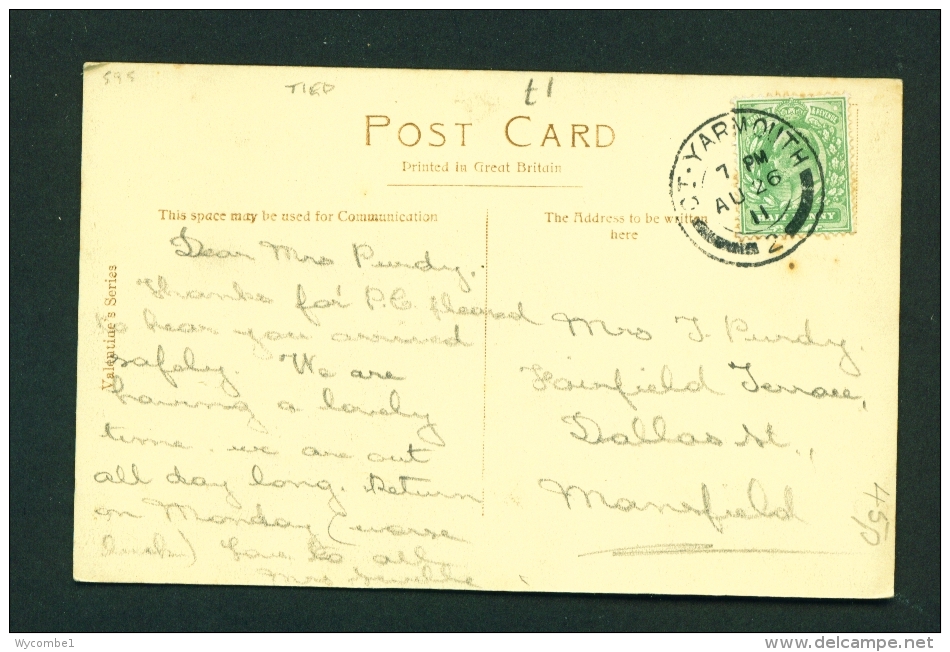 595
TIED
£1
POST CARD
Printed in Great Britain
GT. YARMOUTH
7 PM
AU 26
11
2
This space may be used for Communication
The Address to be written
here
Valentine's Series
Dear Mrs Purdy.
Thanks for P.C. pleased
to hear you arrived
safely. We are
having a lovely
time. we are out
all day long. Return
on Monday (worse
luck) Love to all,
Mrs
Mrs J. Purdy.
Fairfield Terrace,
Dallas St.,
Mansfield
Wycombe1
www.delcampe.net